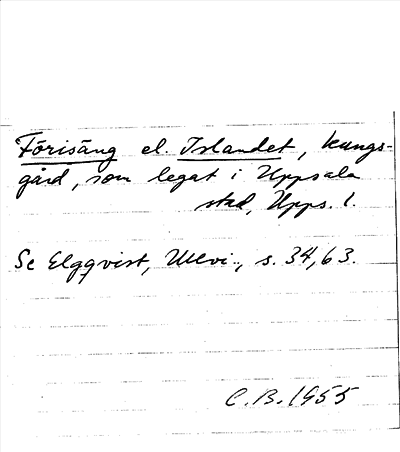 Förisäng el. Islandet, kungs-
gård, som legat i Uppsala
stad, Upps. l.
Se Elgqvist, Ullvi.., s. 34, 63.
C.B. 1955